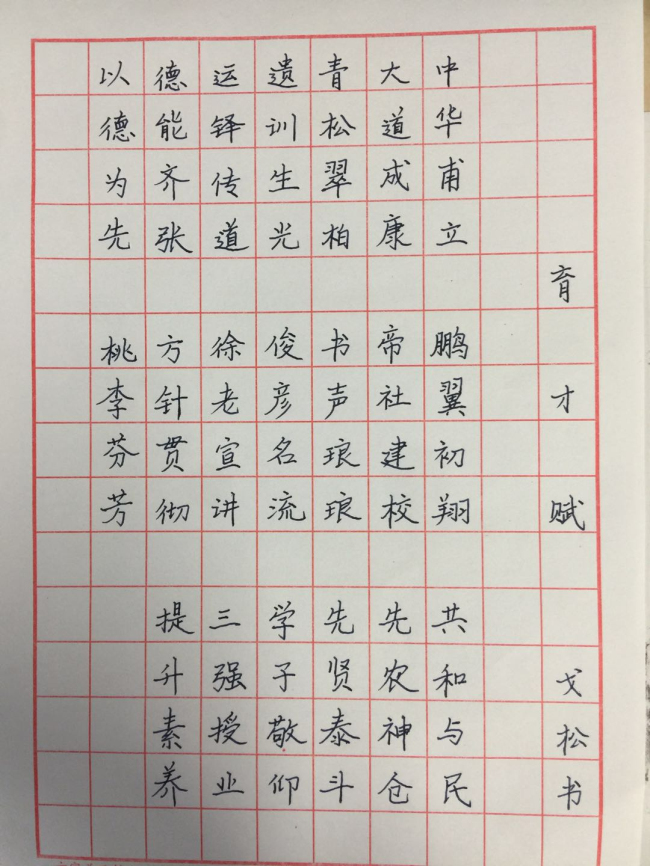 育才赋 戈松书
中华甫立 鹏翼初翔 共和与民
大道成康 帝社建校 先农神仓
青松翠柏 书声琅琅 先贤泰斗
遗训生光 俊彦名流 学子敬仰
运铎传道 徐老宣讲 三强授业
德能齐张 方针贯彻 提升素养
以德为先 桃李芬芳